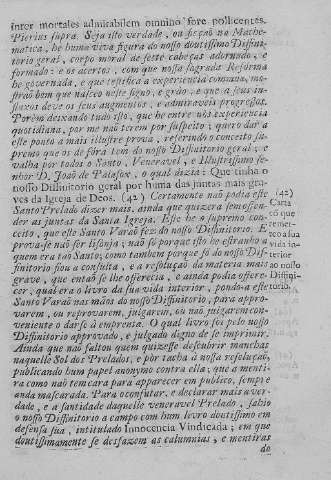 inter mortales admirabilem omnino fore pollicentes.
Pierius supra. Seja isto verdade, ou ficçaõ na Mathe-
matica, he huma viva figura do nosso doutissimo Diffini-
torio geral, corpo moral de sette cabeças adornado, e
formado: e os acertos, com que nossa sagrada Reforma
he governada, e que testifica a experiencia commua, mo-
straõ bem que nasceo neste signo, e gráo, e que a seus in-
fluxos deve os seus augmentos, e admiraveis progressos.
Porèm deixando tudo isto, que he entre nòs experiencia
quotidiana, por me naõ terem por suspeito; quero dar a
este ponto a mais illustre prova, referindo o conceito su-
premo que os de fòra tem do nosso Diffinitorio geral; e
valha por todos o Santo, Veneravel, e Illustrissimo se-
nhor D. Joaõ de Palafox, o qual dizia: Que tinha o
nosso Diffinitorio geral por huma das juntas mais gra-
ves da Igreja de Deos. (42) Certamente naõ podia este
Santo Prelado dizer mais, ainda que quizera semosfen-
der as juntas da Santa Igreja. Este he o supremo con-
ceito, que este Santo Varaõ fez do nosso Diffinitorio. E
prova-se naõ ser lisonja; naõ só porque isto he estranho a
quem era taõ Santo; como tambem porque só do nosso Dif-
finitorio fiou a consulta, e a resoluçaõ da materia mais
grave, que entaõ se lhe offerecia, e ainda podia offere-
cer, qual era o livro da sua vida interior, pondo-a este
Santo Varaõ nas mãos do nosso Diffinitorio, para appro-
varem, ou reprovarem, julgarem, ou naõ julgarem con-
veniente o darse à emprenta. O qual livro foi pelo nosso
Diffinitorio approvado, e julgado digno de se imprimir.
Ainda que naõ faltou quem quizesse descubrir manchas
naquelle Sol dos Prelados, e pòr tacha à nossa resoluçaõ,
publicando hum papel anonymo contra ella; que a menti-
ra como naõ tem cara para apparecer em publico, sempre
anda mascarada. Para o confutar, e declarar mais a ver-
dade, e a santidade daquelle veneravel Prelado, sahio
o nosso Diffinitorio a campo com hum livro doutissimo em
defensa sua, intitulado Innocencia Vindicada; em que
doutissimamente se desfazem as calumnias, e mentiras
do
(42)
Carta
cõ que
remet-
teo a sua
vida in-
terior
ao nosso
Diffini-
torio.